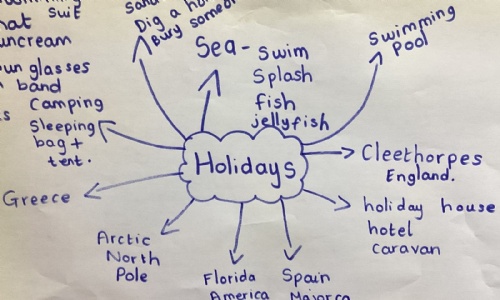 suit
hat
suncream
sun glasses
band
Sand
Dig a
Bury
Sea - swim
Splash
fish
jellyfish
Swimming
Pool
Camping
Sleeping
bag +
tent.
Holidays
Cleethorpes
England.
Greece
holiday house
hotel
caravan
Arctic
North
Pole
Florida
America
Spain
Majorca